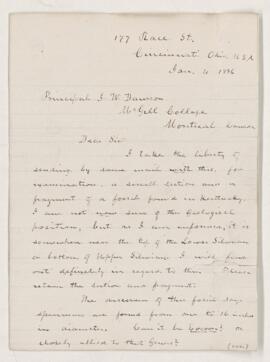 177 Race St.
Cincinnati Ohio U.S.A
Jan. 4 1886
Principal J. W. Dawson
McGill College
Montreal Canada
Dear Sir
I take the liberty of
sending by same mail with this, for
examination, a small section and a
fragment of a fossil found in Kentucky.
I am not now sure of the Geological
position, but as I am informed, it is
somewhere near the top of the Lower Silurian
or bottom of Upper Silurian. I will find
out definitely in regard to this. Please
retain the section and fragment.
The owner of this fossil says
specimens are found from one to 16 inches
in diameter. Can it be Eozoon? or
closely allied to that Genus?
(over)